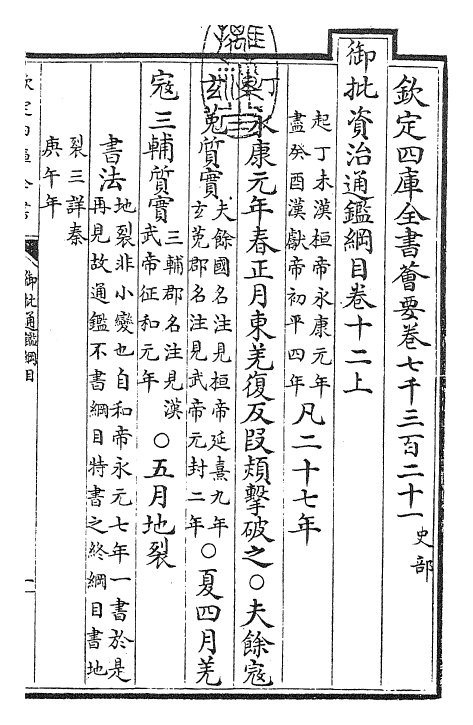 欽定四庫全書薈要卷七千三百二十一 史部
御批資治通鑑綱目卷十二上
起丁未漢桓帝永康元年
盡癸酉漢獻帝初平四年
凡二十七年
丁 永康元年春正月東羌復反段熲擊破之○夫餘寇
玄菟質實
夫餘國名注見桓帝延熹九年
玄菟郡名注見武帝元封二年
○夏四月羌
寇三輔質實
三輔郡名注見漢
武帝征和元年
○五月地裂
書法
地裂非小變也自和帝永元七年一書於是
再見故通鑑不書綱目特書之終綱目書地
裂三詳秦
庚午年
欽定四庫全書
御批通鑑綱目
一